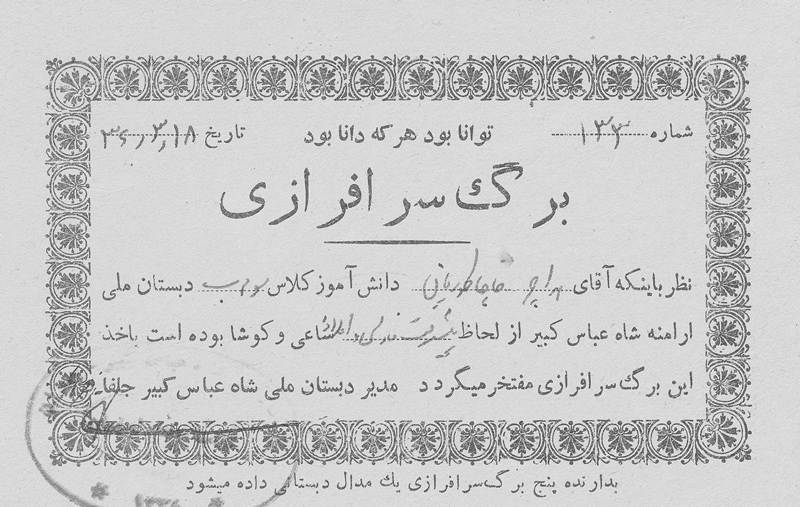 شماره ۱۳۳ توانا بود هر که دانا بود تاریخ ۱۸ر۳ر۳۶
برگ سرافرازی
نظر باینکه آقای خاچاطوریان دانش آموز کلاس دبستان ملی
ارامنه شاه عباس کبیر از لحاظ پیشرفت فارسی و املاء ساعی و کوشا بوده است باخذ
این برگ سرافرازی مفتخر میگردد مدیر دبستان ملی شاه عباس کبیر جلفا
بدارنده پنج برگ سرافرازی یك مدال دبستانی داده میشود